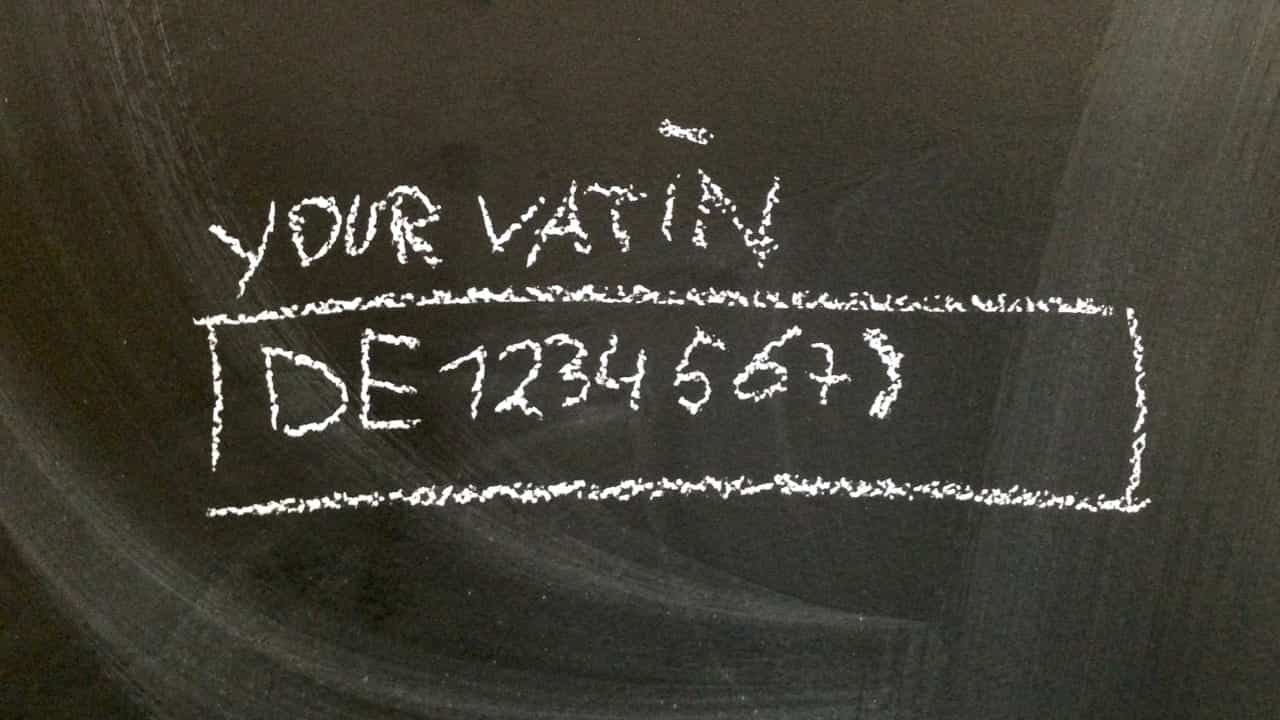 YOUR VATIN
DE 1234567